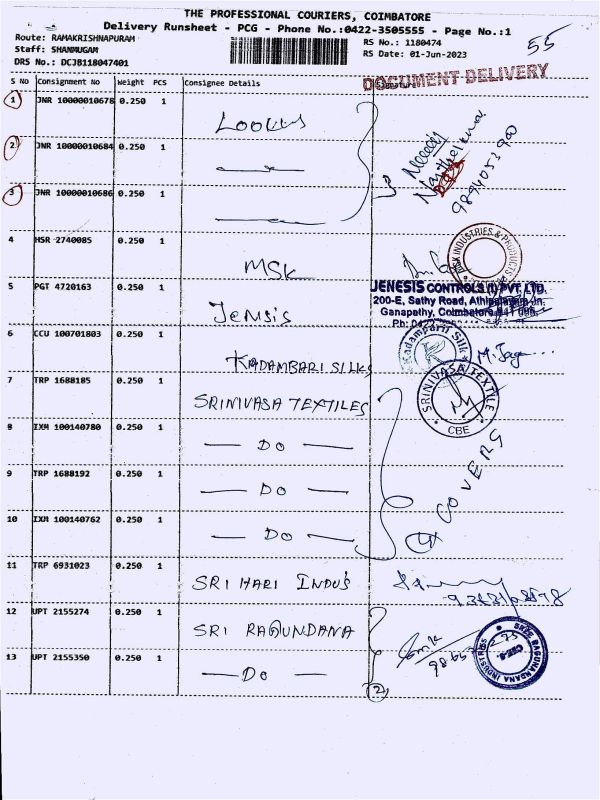 THE PROFESSIONAL COURIERS, COIMBATORE
Delivery Runsheet - PCG - Phone No.:0422-3505555 - Page No.:1
Route: RAMAKRISHNAPURAM
Staff: SHANMUGAM
DRS No.: DCJB118047401
RS No.: 1180474
RS Date: 01-Jun-2023
55
DOCUMENT DELIVERY
S No Consignment No Weight PCS Consignee Details
1 JNR 10000010678 0.250 1
2 JNR 10000010684 0.250 1
3 JNR 10000010686 0.250 1
9894053900
4 HSR 2740085 0.250 1 MSK
MSK INDUSTRIES & PRODUCTS
5 PGT 4720163 0.250 1 Jensis
JENESIS CONTROLS (I) PVT. LTD.
200-E, Sathy Road, Athipalayam Jn.
Ganapathy, Coimbatore
Ph: 0422
6 CCU 100701803 0.250 1 KADAMBARI SILKS
Kadambari Silk
K
7 TRP 1688185 0.250 1 SRINIVASA TEXTILES
SRINIVASA TEXTILE
CBE
8 IXM 100140780 0.250 1 — DO —
9 TRP 1688192 0.250 1 — DO —
10 IXM 100140762 0.250 1 — DO —
4 COVERS
11 TRP 6931023 0.250 1 SRI HARI INDUS
12 UPT 2155274 0.250 1 SRI RAGUNDANA
SREE RAGUNANDANA INDUSTRIES
13 UPT 2155350 0.250 1 — DO —
2